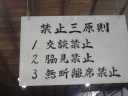 禁止三原則
1 交談禁止
2 脇見禁止
3 無断離席禁止